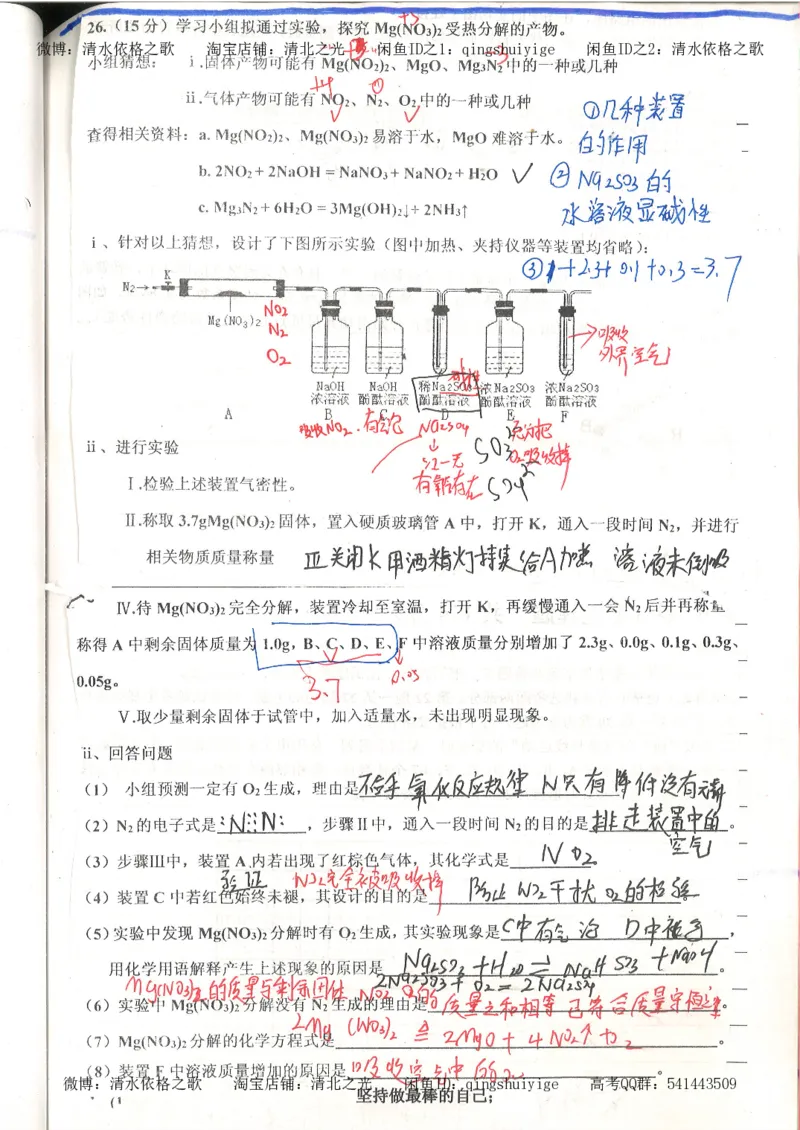 26.(15分)学习小组拟通过实验，探究 Mg(NO3)2 受热分解的产物。
微博：清水依格之歌 淘宝店铺：清北之光 闲鱼ID之1：qingshuiyige 闲鱼ID之2：清水依格之歌
小组猜想： ⅰ.固体产物可能有 Mg(NO2)2、MgO、Mg3N2 中的一种或几种
ⅱ.气体产物可能有 NO2、N2、O2 中的一种或几种
①几种装置
的作用
查得相关资料：a. Mg(NO2)2、Mg(NO3)2 易溶于水，MgO 难溶于水。
b. 2NO2 + 2NaOH = NaNO3 + NaNO2 + H2O
②Na2SO3的
水溶液显碱性
c. Mg3N2 + 6H2O = 3Mg(OH)2↓+ 2NH3↑
ⅰ、针对以上猜想，设计了下图所示实验（图中加热、夹持仪器等装置均省略）：
③1+2.3+0.1+0.3=3.7
N2→ K
Mg(NO3)2
NO2
N2
O2
吸收
外界空气
NaOH NaOH 稀Na2SO3 浓Na2SO3 浓Na2SO3
浓溶液 酚酞溶液 酚酞溶液 酚酞溶液 酚酞溶液
A B C D E F
吸收NO2 Na2SO4
ⅱ、进行实验
Ⅰ.检验上述装置气密性。
Ⅱ.称取 3.7gMg(NO3)2 固体，置入硬质玻璃管 A 中，打开 K，通入一段时间 N2，并进行
相关物质质量称量
Ⅲ关闭K用酒精灯持续给A加热 溶液未倒吸
Ⅳ.待 Mg(NO3)2 完全分解，装置冷却至室温，打开 K，再缓慢通入一会 N2 后并再称量
称得 A 中剩余固体质量为 1.0g，B、C、D、E、F 中溶液质量分别增加了 2.3g、0.0g、0.1g、0.3g、
0.05g。
3.7 0.05
Ⅴ.取少量剩余固体于试管中，加入适量水，未出现明显现象。
ⅱ、回答问题
（1） 小组预测一定有 O2 生成，理由是 氧化反应规律 N只有降低没有
（2）N2 的电子式是 :N⋮⋮N: ，步骤Ⅱ中，通入一段时间 N2 的目的是 排走装置中的 。
空气
（3）步骤Ⅲ中，装置 A 内若出现了红棕色气体，其化学式是 NO2
验证 NO2完全被吸收
（4）装置 C 中若红色始终未褪，其设计的目的是 防止NO2干扰O2的检验
（5）实验中发现 Mg(NO3)2 分解时有 O2 生成，其实验现象是 C中有气泡 D中褪色 ，
用化学用语解释产生上述现象的原因是 Na2SO3+H2O⇌NaHSO3+NaOH 。
2Na2SO3+O2=2Na2SO4
Mg(NO3)2的质量与剩余固体
（6）实验中 Mg(NO3)2 分解没有 N2 生成的理由是 质量之和相等 已符合质量守恒定律
（7）Mg(NO3)2 分解的化学方程式是 2Mg(NO3)2≜2MgO+4NO2↑+O2 。
（8）装置 F 中溶液质量增加的原因是 吸收空气中的O2 。
微博：清水依格之歌 淘宝店铺：清北之光 闲鱼ID：qingshuiyige 高考QQ群：541443509
坚持做最棒的自己；